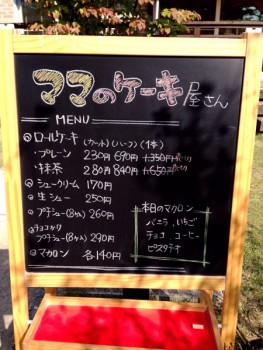 ママのケーキ屋さん
MENU
ロールケーキ (カット)(ハーフ)(1本)
・プレーン 230円 690円 1,350円
・抹茶 280円 840円 1,650円
シュークリーム 170円
生シュー 250円
プチシュー(8ヶ入) 260円
チョコがけ
プチシュー(8ヶ入) 290円
マカロン 各140円
本日のマカロン
バニラ、いちご
チョコ コーヒー
ピスタチオ